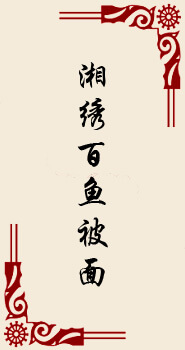 湘绣百鱼被面